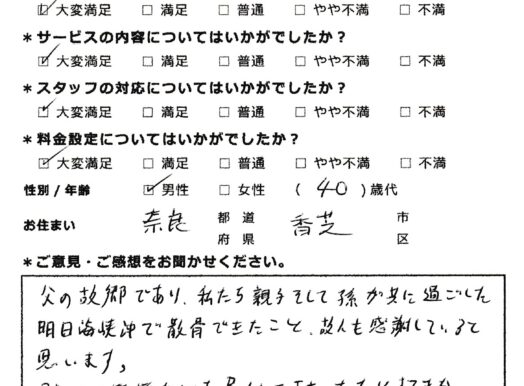 ☑ 大変満足 □ 満足 □ 普通 □ やや不満 □ 不満
＊サービスの内容についてはいかがでしたか？
☑ 大変満足 □ 満足 □ 普通 □ やや不満 □ 不満
＊スタッフの対応についてはいかがでしたか？
☑ 大変満足 □ 満足 □ 普通 □ やや不満 □ 不満
＊料金設定についてはいかがでしたか？
☑ 大変満足 □ 満足 □ 普通 □ やや不満 □ 不満
性別 / 年齢 ☑ 男性 □ 女性 ( 40 ) 歳代
お住まい 奈良 都 道 府 県 香芝 市 区
＊ご意見・ご感想をお聞かせください。
父の故郷であり、私たち親子そして孫が共に過ごした
明日海峡沖で散骨できたこと、故人も感謝していると
思います。